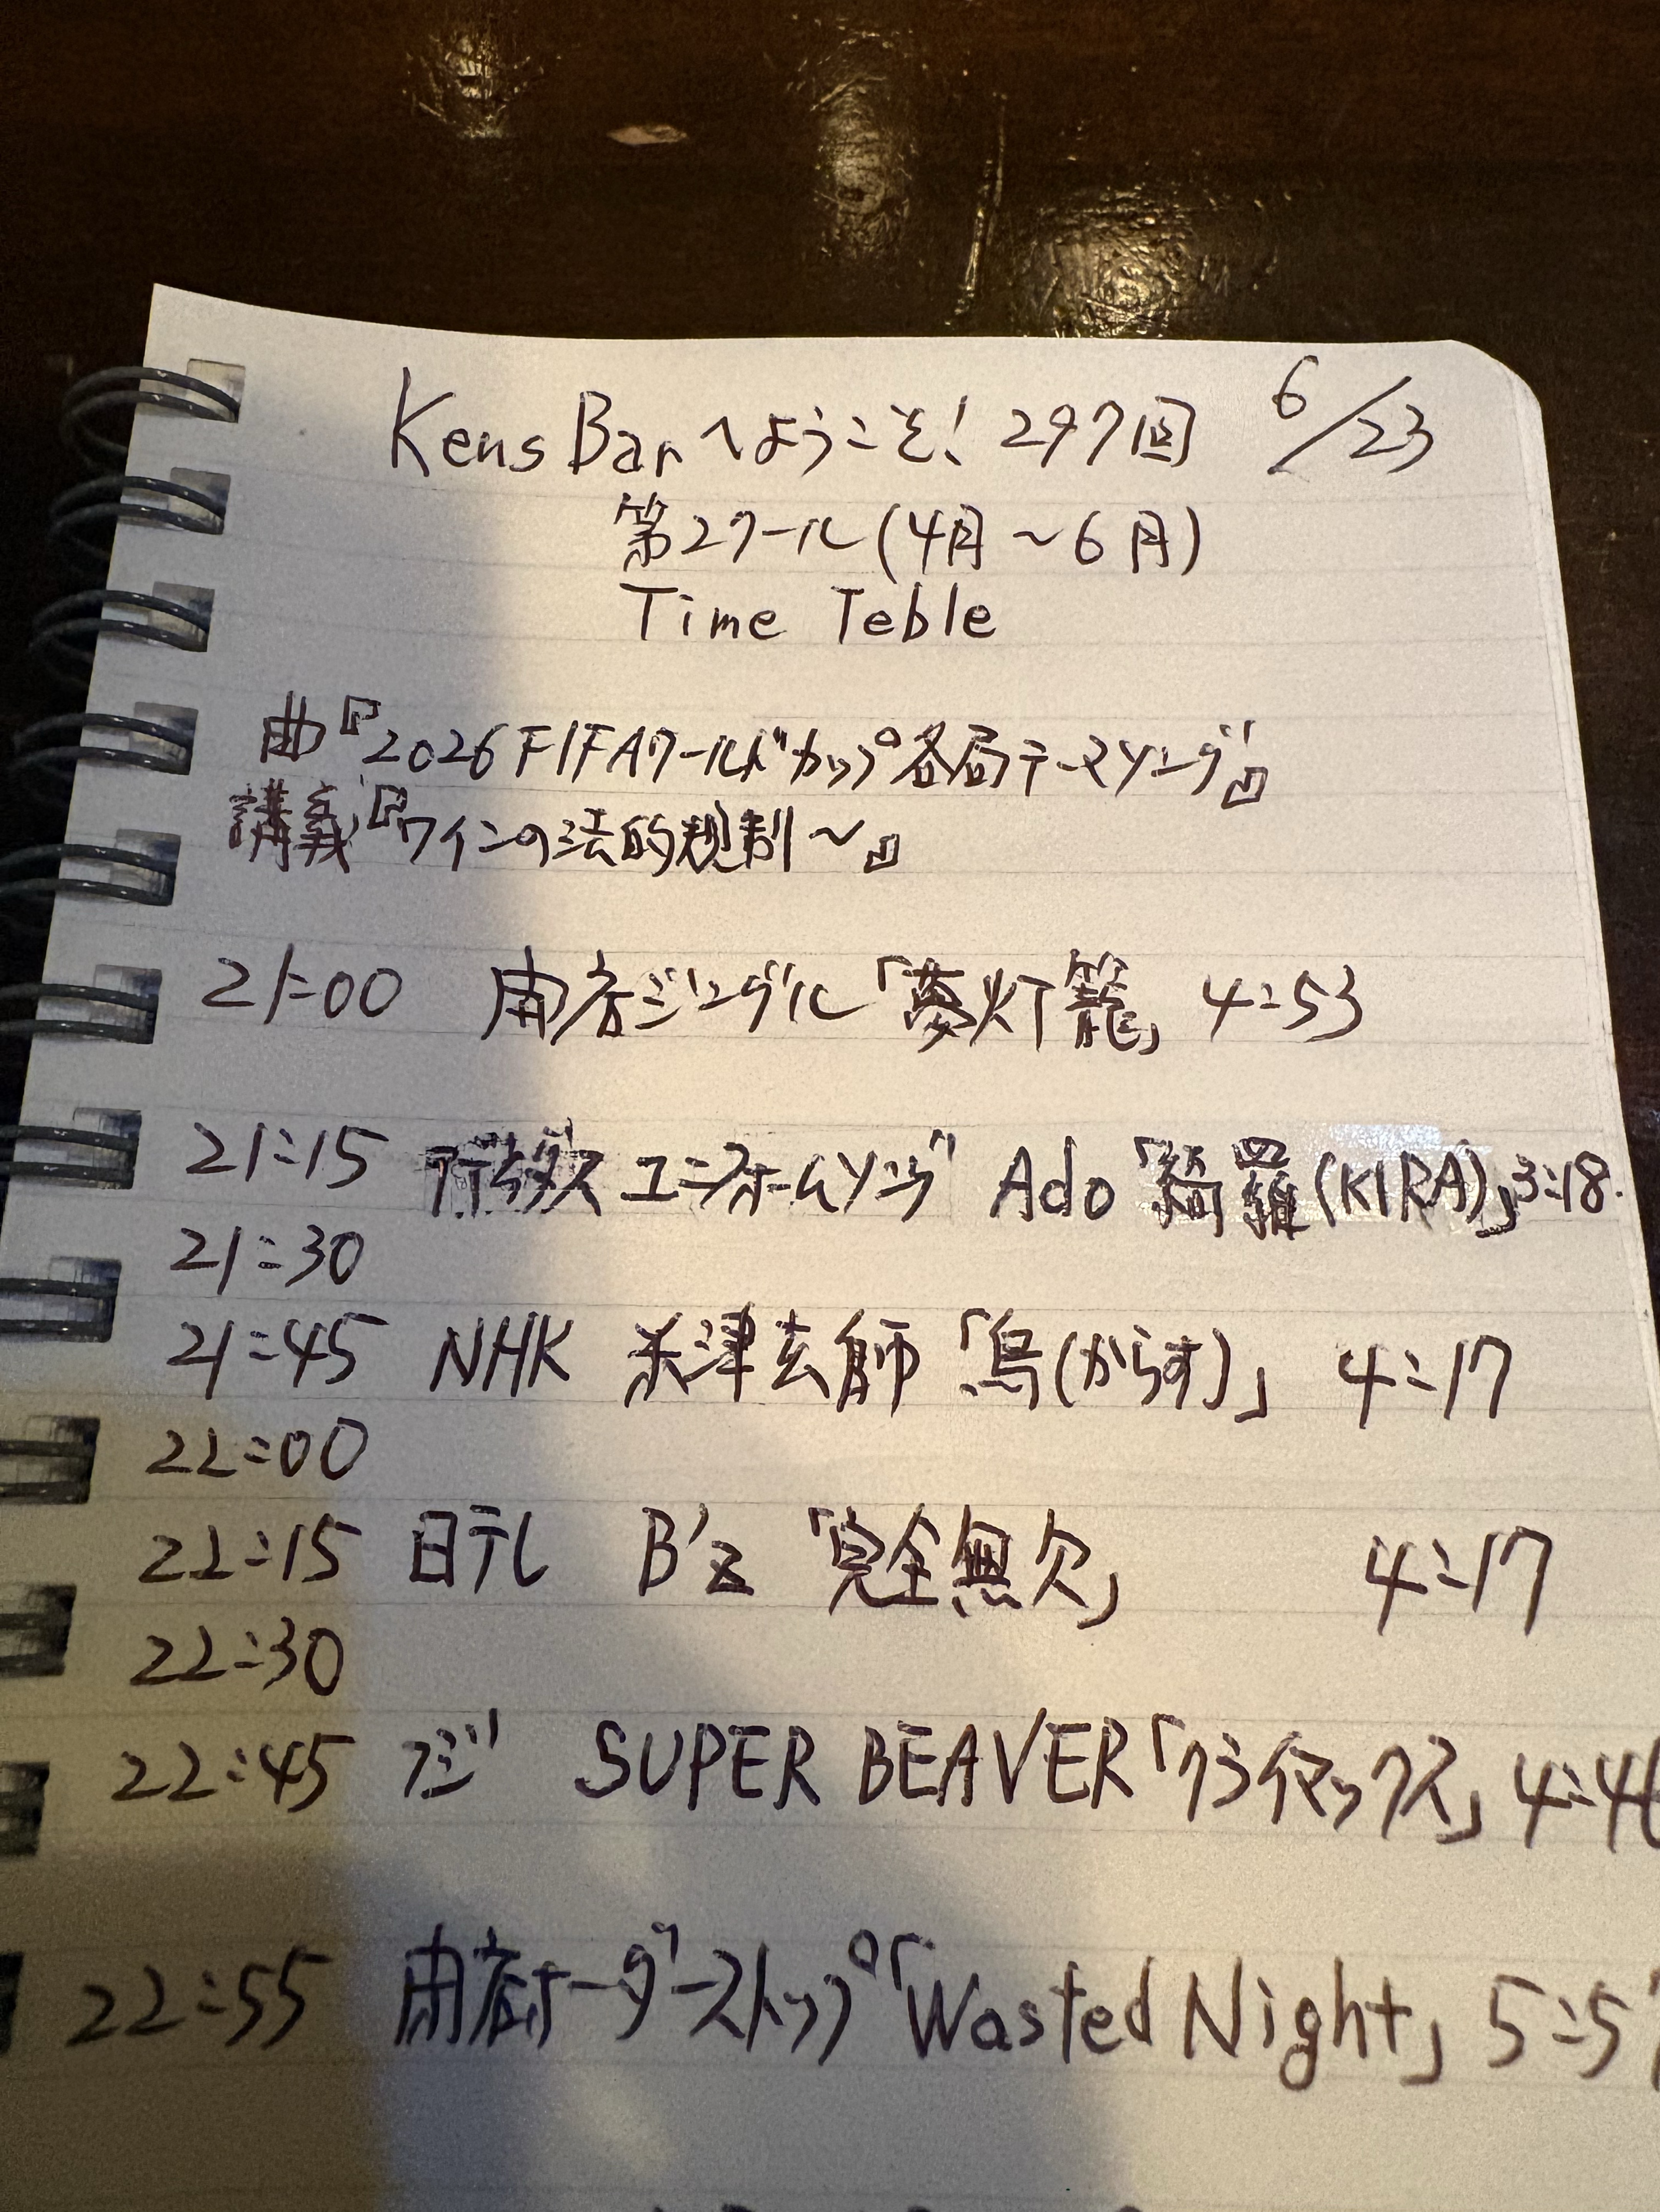 Kens Barへようこそ! 297回 6/23
第2クール(4月～6月)
Time Teble
曲『2026 FIFAワールドカップ各局テーマソング』
講義『ワインの法的規制～』
21:00 開店ジングル「夢灯籠」 4:53
21:15 アディダス ユニフォームソング Ado「綺羅(KIRA)」3:18
21:30
21:45 NHK 米津玄師「烏(からす)」 4:17
22:00
22:15 日テレ B'z「完全無欠」 4:17
22:30
22:45 フジ SUPER BEAVER「クライマックス」
22:55 オーダーストップ「Wasted Night」